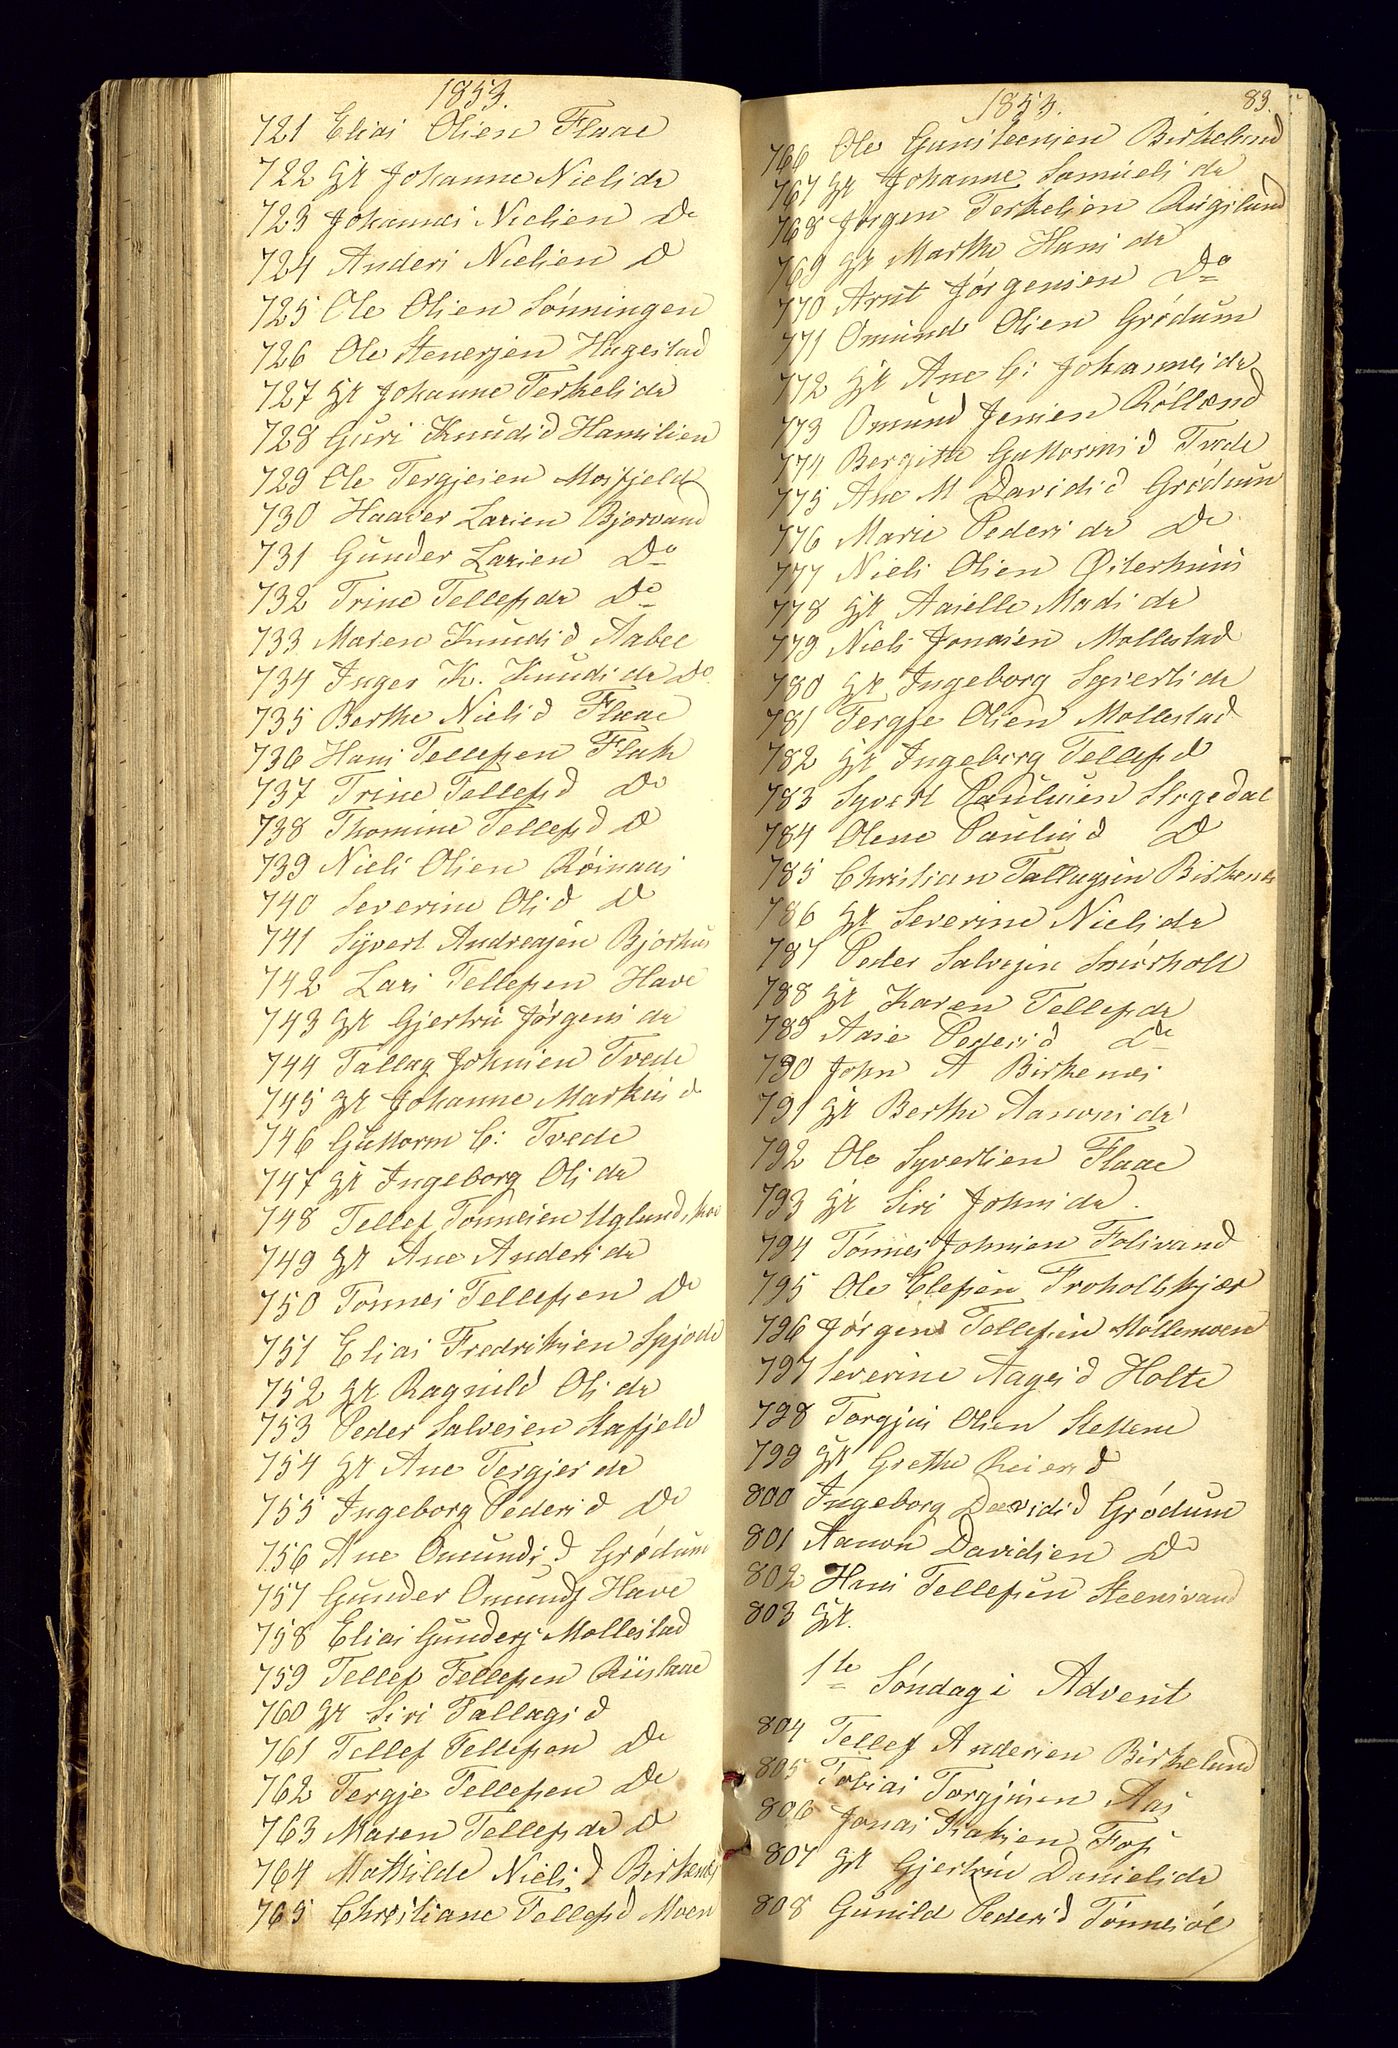 1853.
721 Elias Olsen Flaae
722 Gt Johanne Nielsdr
723 Johannes Nielsen Do
724 Anders Nielsen D
725 Ole Olsen Sønningen
726 Ole Stenersen Hægestad
727 Gt Johanne Terkelsdr
728 Guri Knudsd Hamslien
729 Ole Tergjesen Mosfjeld
730 Haaver Larsen Bjorvand
731 Gunder Larsen Do
732 Trine Tellefsdr Do
733 Maren Knudsd Aabel
734 Inger K. Knudsdr Do
735 Berthe Nielsd Flaae
736 Hans Tellefsen Flak
737 Trine Tellefsd Do
738 Thomine Tellefsd D
739 Niels Olsen Røinaas
740 Severine Olsd D
741 Syvert Andreasen Bjorhus
742 Lars Tellefsen Have
743 Gt Gjertru Jørgensdr
744 Tallag Johnsen Tvede
745 Gt Johanne Markusd
746 Guttorm C: Tvede
747 Gt Ingeborg Olsdr
748 Tellef Tønnesen Uglands
749 Gt Ane Andersdr
750 Tønnes Tellefsen Do
751 Elias Fredriksen Spjode
752 Gt Ragnild Olsdr
753 Peder Salvesen Kafjeld
754 Gt Ane Tergjesdr
755 Ingeborg Pedersd Do
756 Ane Omundsd Grødum
757 Gunder Omunds Have
758 Elias Gunders Mollestad
759 Tellef Tellefsen Riislaae
760 Gt Siri Tallagsd
761 Tellef Tellefsen Do
762 Tergje Tellefsen Do
763 Maren Tellefsdr D
764 Mathilde Nielsd Birkenæs
765 Christiane Tellefsd Moen
1853. 83.
766 Ole Gunsteensen Birkeland
767 Gt Johanne Samuelsdr
768 Jørgen Terkelsen Rugsland
769 Gt Marthe Hansdr
770 Arnt Jørgensen Do
771 Omund Olsen Grødum
772 Gt Ane C: Johannesdr
773 Omund Jensen Rølland
774 Bergithe Guttormsd Tvede
775 Ane M Davidsd Grødum
776 Marie Pedersdr Do
777 Niels Olsen Østerhuus
778 Gt Aaselle Madsdr
779 Niels Jonasen Mollestad
780 Gt Ingeborg Syvertsdr
781 Tergje Olsen Mollestad
782 Gt Ingeborg Tellefsd
783 Syvert Paulusen Skogedal
784 Olene Paulusd D
785 Christian Tallagsen Birkenes
786 Gt Severine Nielsdr
787 Peder Salvesen Sveirholt
788 Gt Karen Tellefsdr
789 Aase Pedersd Do
790 John A Birkenæs
791 Gt Berthe Aanonsdr
792 Ole Syvertsen Flaae
793 Gt Siri Johnsdr.
794 Tønnes Johnsen Folivand
795 Ole Elefsen Troholtkjær
796 Jørgen Tellefsen Møllemoen
797 Severine Aagesd Holte
798 Torgjus Olsen Slettene
799 Gt Grethe Reiersd
800 Ingeborg Davidsd Grødum
801 Aanon Davidsen Do
802 Hans Tellefsen Steensvand
803 Gt.
1te Søndag i Advent
804 Tellef Andersen Birkeland
805 Tobias Torgjusen Aas
806 Jonas Fos
807 Gt Gjertru Danielsdr
808 Gunild Pedersd Tønnesøl